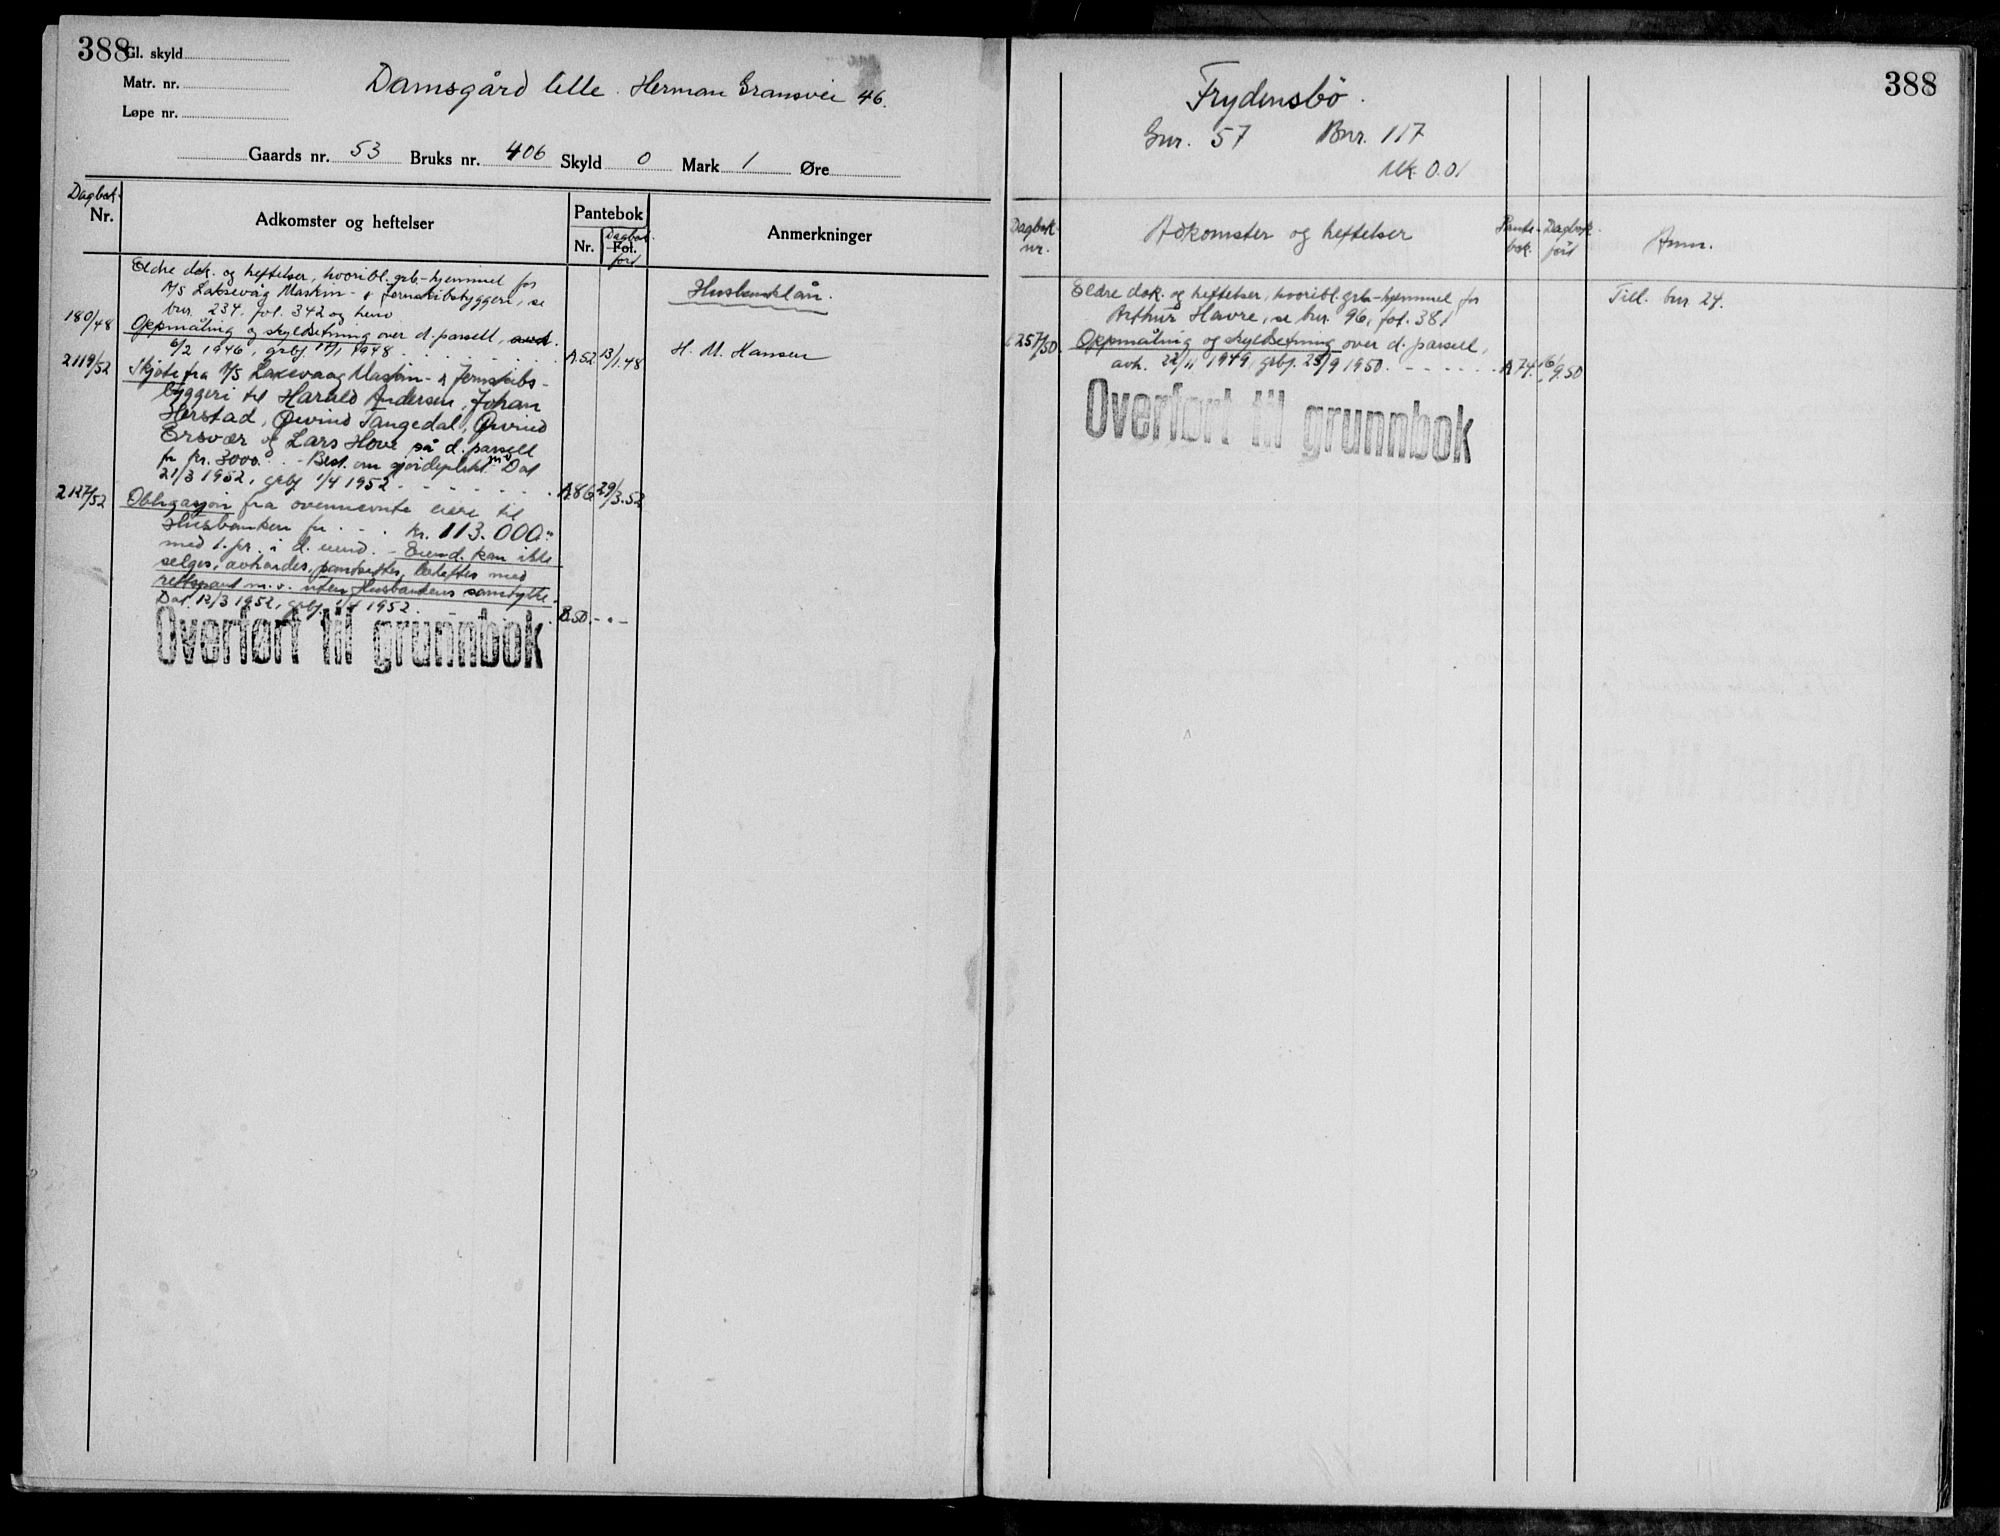 388
Gl. skyld
Matr. nr.
Løpe nr.
Damsgård lille. Herman Gransvei 46.
Gaards nr. 53 Bruks nr. 406 Skyld 0 Mark 1 Øre
Dagbok
Nr.
Adkomster og heftelser
Pantebok
Nr.
Dagbok
Fol.
ført
Anmerkninger
Eldre dok. og heftelser, hvoribl. grb-hjemmel for
A/S Laksevåg Maskin- & Jernskibsbyggeri, se
bnr. 234, fol. 342 og
Husbanklån.
180/48 Oppmåling og skyldsetning over d. parsell, avh.
6/2 1946, grbj 17/1 1948. A.52 13/1.48
H. M. Hansen
2119/52 Skjøte fra A/S Laksevaag Maskin- & Jernskibs-
byggeri til Harald Andersen, Johan
Herstad, Øivind Tangedal, Øivind
Ersvær og Lars Hove på d. parsell
for kr. 3000.- Best. om gjerdeplikt mv Dat
21/3 1952, grbj 1/4 1952. A.86 29/3.52
2127/52 Obligasjon fra ovennevnte eiere til
Husbanken for kr. 113.000.-
med 1. pr. i d. eiend. - Eiend. kan ikke
selges, avhendes, pantsettes, beheftes med
rettspant m.v. uten Husbankens samtykke.
Dat. 12/3 1952, grbj. 1/4 1952. B.50. - " -
Overført til grunnbok
388
Frydensbö.
Gnr. 57 Bnr. 117
Mk 0.01
Dagbok
nr.
Adkomster og heftelser
Pante-
bok.
Dagbok
ført
Anm.
Eldre dok. og heftelser, hvoribl. grb-hjemmel for
Arthur Havre, se bnr. 96, fol. 381
Till. bnr 24.
6257/50. Oppmåling og skyldsetning over d. parsell,
avh. 22/11 1949, grbj. 25/9 1950. A 74. 16/9.50
Overført til grunnbok